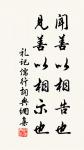 聞善以相告也
見善以相示也
礼记儒行词典网集